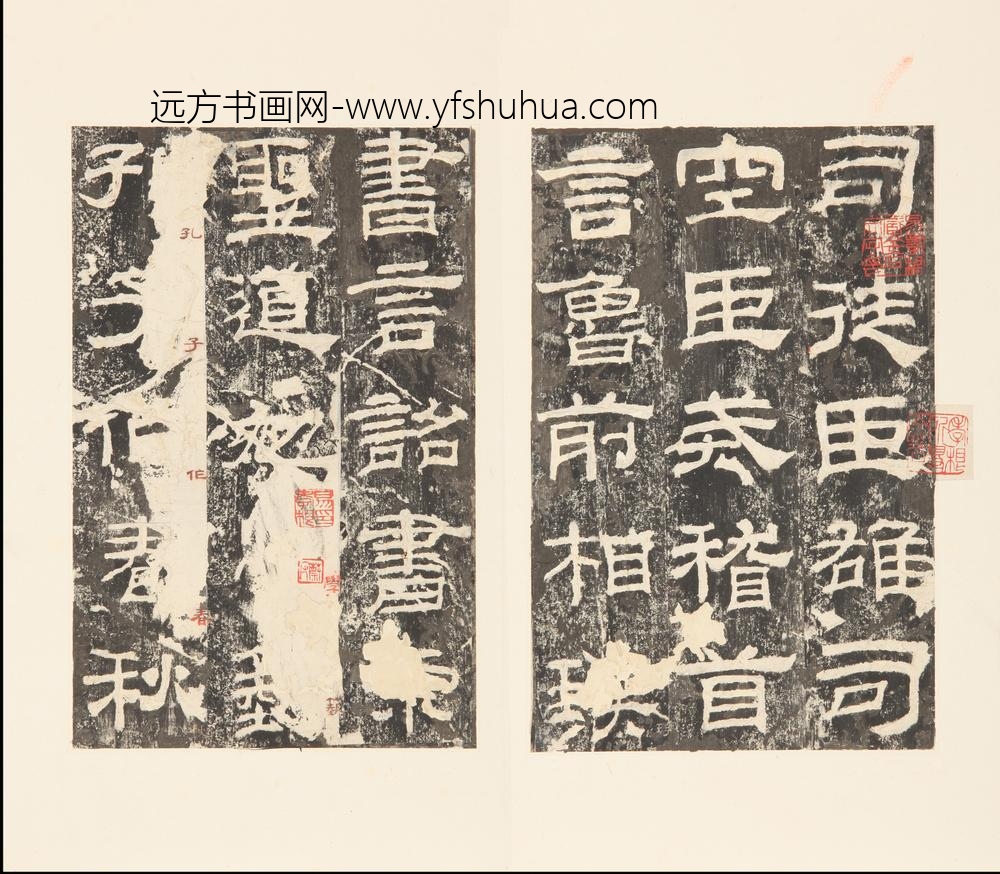 远方书画网-www.yfshuhua.com
司徒臣雄司
空臣戒稽首
言魯前相瑛
書言詔書崇
聖道勉藝
學
孔子作春秋
孔子作春